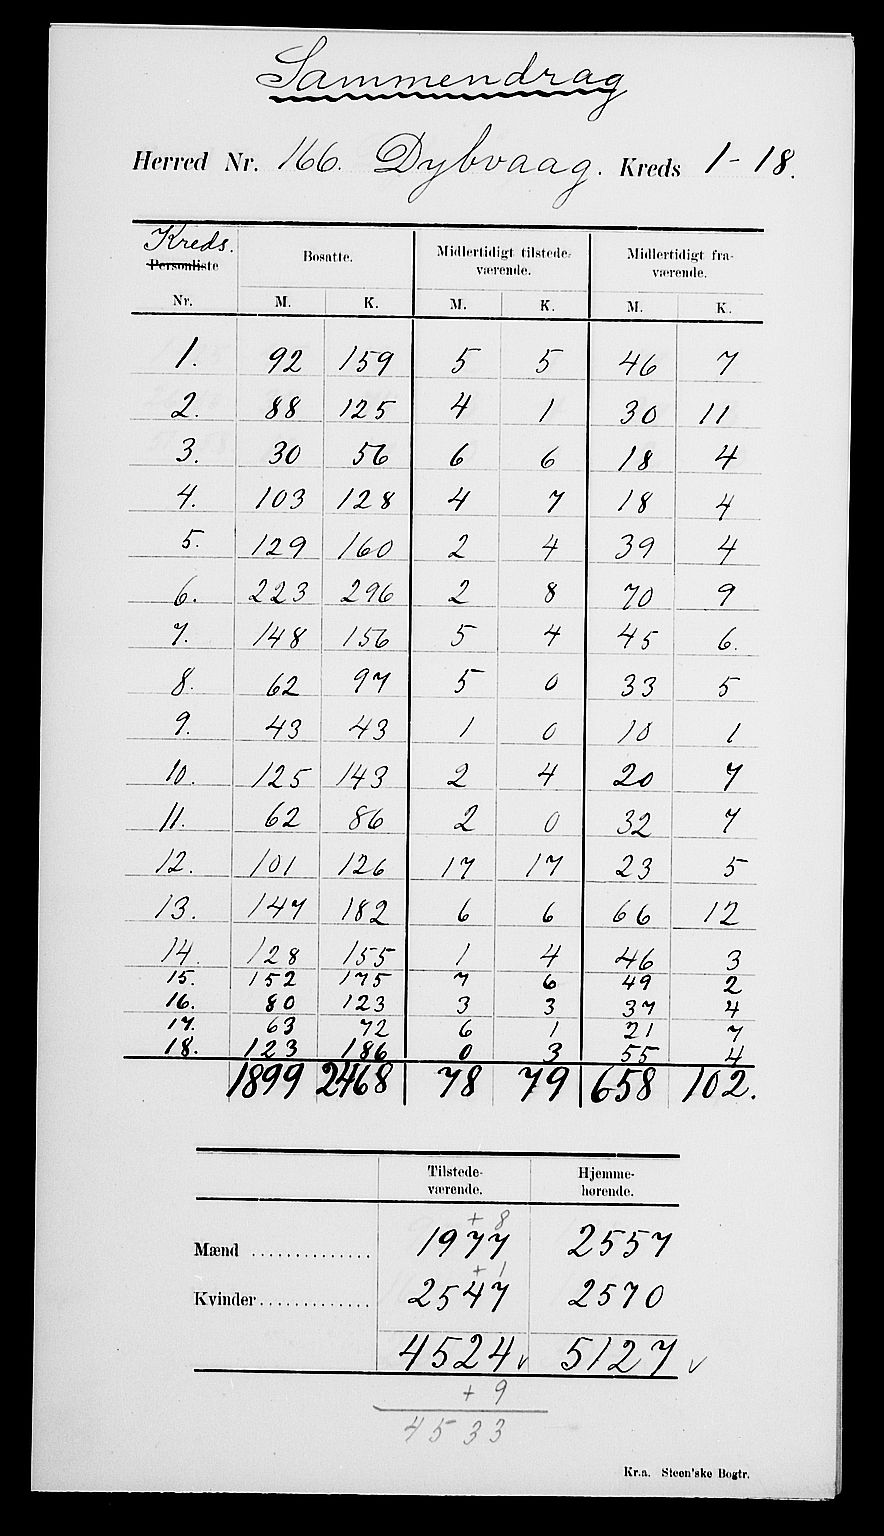 Sammendrag
Herred Nr. 166. Dybvaag. Kreds 1-18.
Kreds.
Personliste Nr. Bosatte. Midlertidigt tilstedeværende. Midlertidigt fraværende.
M. K. M. K. M. K.
1. 92 159 5 5 46 7
2. 88 125 4 1 30 11
3. 30 56 6 6 18 4
4. 103 128 4 7 18 4
5. 129 160 2 4 39 4
6. 223 296 2 8 70 9
7. 148 156 5 4 45 6.
8. 62 97 5 0 33 5
9. 43 43 1 0 10 1
10. 125 143 2 4 20 7
11. 62 86 2 0 32 7
12. 101 126 17 17 23 5
13. 147 182 6 6 66 12
14. 128 155 1 4 46 3
15. 152 175 7 6 49 2
16. 80 123 3 3 37 4
17. 63 72 6 1 21 7
18. 123 186 0 3 55 4
1899 2468 78 79 658 102.
Tilstedeværende. Hjemmehørende.
+ 8
Mænd .............. 1977 2557
+ 1
Kvinder............. 2547 2570
4524 ✓ 5127 ✓
+ 9
4533
Kr.a. Steen'ske Bogtr.